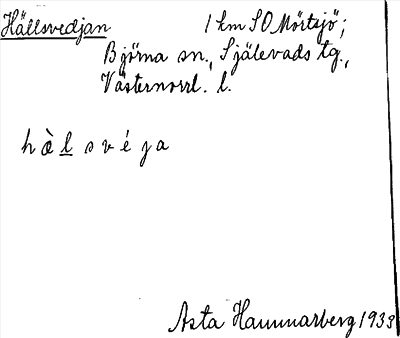 Hällsvedjan 1 km SO Mörtsjö;
Björna sn., Själevads tg.,
Västernorrl. l.
hὰl̲svéja
Asta Hammarberg 1933